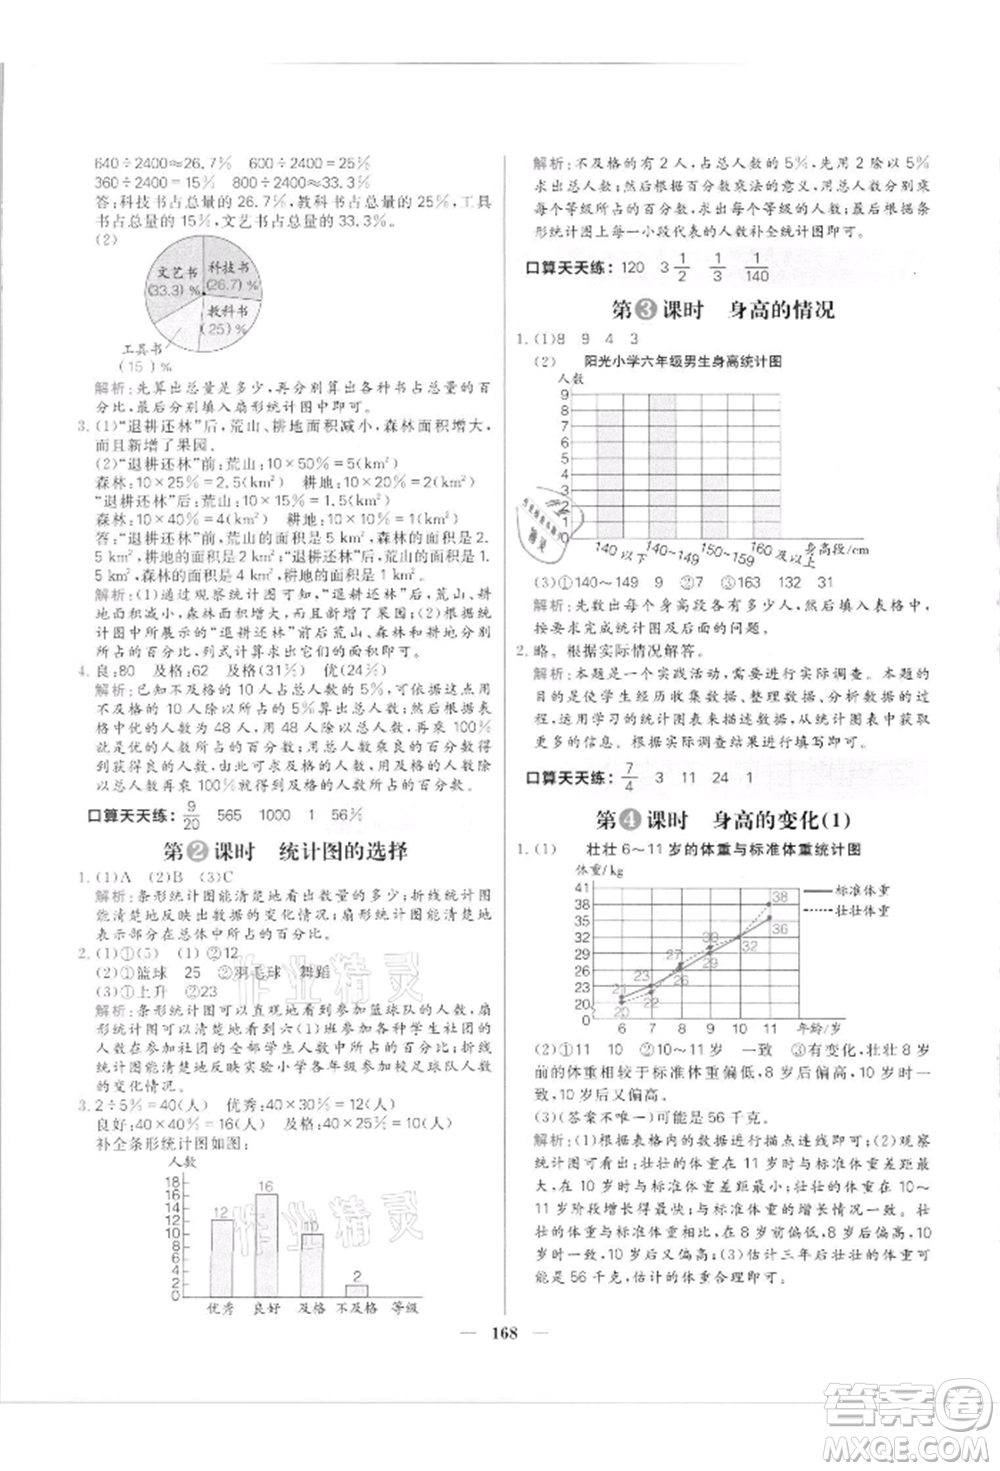 640÷2400≈26.7% 600÷2400=25%
360÷2400=15% 800÷2400≈33.3%
答:科技书占总量的26.7%,教科书占总量的25%,工具
书占总量的15%,文艺书占总量的33.3%。
(2)
文艺书
(33.3)%
科技书
(26.7)%
教科书
(25)%
工具书
(15)%
解析:先算出总量是多少,再分别算出各种书占总量的百
分比,最后分别填入扇形统计图中即可。
3.(1)“退耕还林”后,荒山、耕地面积减小,森林面积增大,
而且新增了果园。
(2)“退耕还林”前:荒山:10×50%=5(km²)
森林:10×25%=2.5(km²) 耕地:10×20%=2(km²)
“退耕还林”后:荒山:10×15%=1.5(km²)
森林:10×40%=4(km²) 耕地:10×15%=1.5(km²)
答:“退耕还林”前,荒山的面积是5km²,森林的面积是2.
5km²,耕地的面积是2km²;“退耕还林”后,荒山的面积是1.
5km²,森林的面积是4km²,耕地的面积是1.5km²。
解析:(1)通过观察统计图可知,“退耕还林”后,荒山、耕
地面积减小,森林面积增大,而且新增了果园;(2)根据统
计图中所展示的“退耕还林”前后荒山、森林和耕地所占
的百分比,分别计算出它们的面积即可。
4.良:80 及格:62 及格(31%) 优(24%)
解析:已知不及格的10人占总人数的5%,可根据这点用
不及格的10人除以5%算出总人数;然后根据条形统计
图中优的人数为48人,用48人除以总人数,再乘100%
就是优的人数所占的百分比;总人数乘良的百分比得到
良的人数;最后根据及格的人数为62人,用62人除以总
人数再乘100%就得到及格的人数所占的百分比。
口算天天练: 9/20 565 1000 1 56%
第2课时 统计图的选择
1.(1)A (2)B (3)C
解析:条形统计图能清楚地看出数量的多少,折线统计图
能清楚地反映出数据的变化情况;扇形统计图能清楚地
表示部分在总体中所占的百分比。
2.(1)①(5) (1) ②12
(2)①篮球 25 ②羽毛球 舞蹈
(3)①上升 ②23
解析:条形统计图可以直观地看出参加篮球队的人数,扇
形统计图可以清楚地看到六(1)班参加各种学生社团的
人数占参加社团的全部学生人数的百分比;折线
统计图能清楚地反映实验小学各年级参加校足球队人数
的变化情况。
3.2÷5%=40(人) 优秀:40×30%=12(人)
良好:40×40%=16(人) 及格:40×25%=10(人)
补全条形统计图如图:
人数
18
16
14
12
10
8
6
4
2
0
12
16
10
2
优秀 良好 及格 不及格 等级
解析:不及格的有2人,占总人数的5%,用2除以5%求
出总人数,然后根据百分数乘法的意义,用总人数分别乘
每个等级所占的百分数,求出每个等级的人数;最后根据条
形统计图上每一小段代表的人数补全统计图即可。
口算天天练: 120 3 1/2 1/3 1/140
第3课时 身高的情况
1.(1)8 9 4 3
(2) 阳光小学六年级男生身高统计图
人数
9
8
7
6
5
4
3
2
1
0
140以下 140~149 150~159 160以上 身高段/cm
(3)①140~149 9 ②7 ③163 132 31
解析:先数出每个身高段有多少人,再填入表格中,然后
按要求完成统计图及后面的问题。
2.略。根据实际情况解答。
解析:本题是一个实践活动,需要进行实际调查。本题的
目的是使学生经历收集数据、整理数据、分析数据的过
程,运用学习的统计图表来描述数据,从统计图表中获取
更多的信息。根据实际调查结果进行填写即可。
口算天天练: 7/4 3 11 24 1
第4课时 身高的变化(1)
1.(1) 壮壮6~11岁的体重与标准体重统计图
体重/kg
41
38
35
32
29
26
23
20
0
标准体重
壮壮体重
21
20
23
22
27
26
30
29
32
38
36
6 7 8 9 10 11 年龄/岁
(2)①11 10 ②10~11 一致 ③有变化,壮壮8岁
前的体重与标准体重相比偏低,8岁后偏高,10岁时一
致,10岁后又偏高。
(3)(答案不唯一)可能是56千克。
解析:(1)根据表格内的数据进行描点连线即可;(2)观察
统计图可看出:壮壮的体重在11岁时超出标准体重最
多;壮壮的体重从10岁到11岁变化的幅度最大,所以
体重增长得最快;与标准体重的增长情况一致。壮
壮的体重与标准体重相比,在8岁前偏低,8岁后偏高,10岁
时一致,10岁后又偏高;(3)估计三年后壮壮的体重可能
是56千克,估计的体重合理即可。
168
作业精灵
作业精灵
答案圈
MXQE.COM